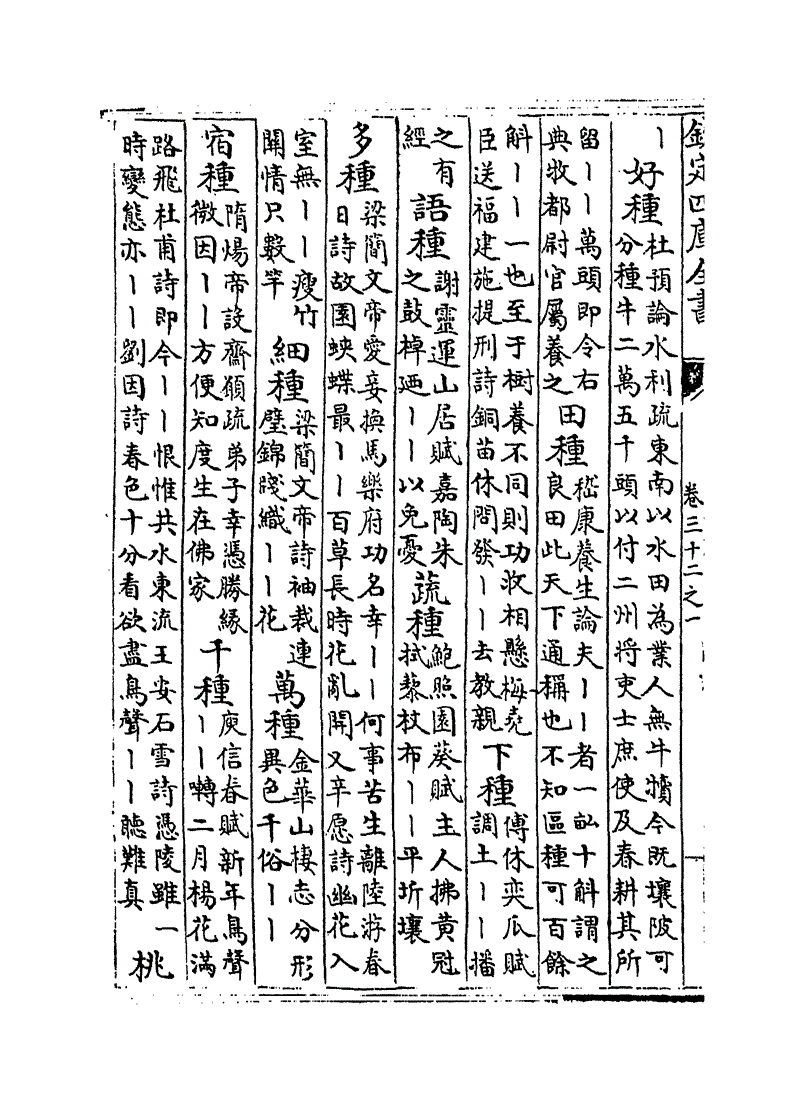 欽定四庫全書 卷三十二之一
丨
好種
杜預論水利疏東南以水田為業人無牛犢今既壞陂可
分種牛二萬五千頭以付二州將吏士庶使及春耕其所
留丨丨萬頭即令右
典牧都尉官屬養之
田種
嵇康養生論夫丨丨者一畝十斛謂之
良田此天下通稱也不知區種可百餘
斛丨丨一也至于樹養不同則功收相懸梅堯
臣送福建施提刑詩銅苗休問發丨丨去教親
下種
傅休奕瓜賦
調土丨丨播
之有
經
語種
謝靈運山居賦嘉陶朱
之鼓棹廼丨丨以免憂
蔬種
鮑照園葵賦主人拂黄冠
拭藜杖布丨丨平圻壤
多種
梁簡文帝愛妾換馬樂府功名幸丨丨何事苦生離陸游春
日詩故園蛺蝶最丨丨百草長時花亂開又辛愿詩幽花入
室無丨丨瘦竹
關情只數竿
細種
梁簡文帝詩袖裁連
璧錦牋織丨丨花
萬種
金華山棲志分形
異色千俗丨丨
宿種
隋煬帝設齋願疏弟子幸憑勝緣
微因丨丨方便知度生在佛家
千種
庾信春賦新年鳥聲
丨丨囀二月楊花滿
路飛杜甫詩即今丨丨恨惟共水東流王安石雪詩憑陵雖一
時變態亦丨丨劉因詩春色十分看欲盡鳥聲丨丨聽難真
桃